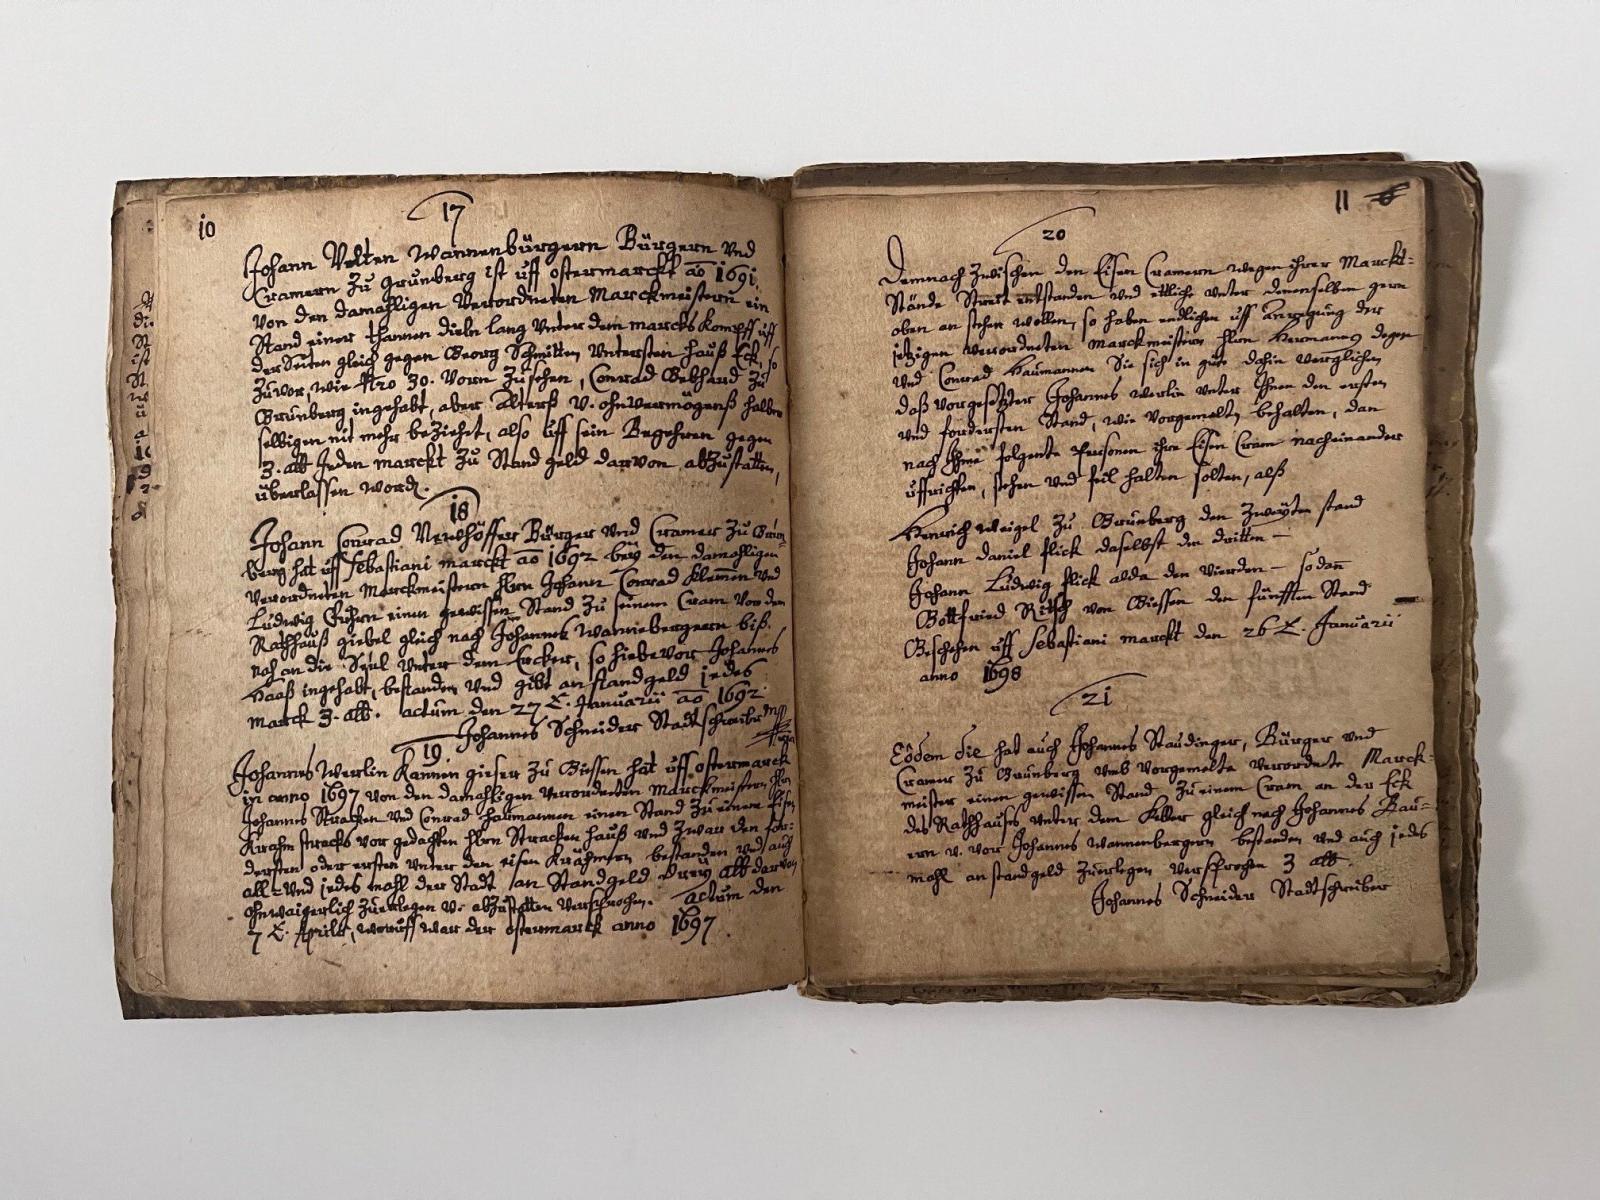 10
17
Johann Velten Wannenbürgern Bürgern und
Cramern Zu Grünberg ist uff ostermarckt ao 1691.
von den damahligen verordneten Marckmeistern ein
Stand einer thannen dieln lang unter dem marcks Kompff uff
der Seiten gleich gegen Georg Schmitten Untersten hauß Eck, so
Zuvor, wie Nro 30. vorn Zusehen, Conrad Gebhard Zu
Grünberg ingehabt, aber Alterß v. ohnvermögenß halber
selbigen nit mehr beziehet, also uff sein Begehren gegen
3. alb Jeden marckt Zu Standgeld darvon abZustatten,
überlassen word.
18
Johann Conrad Newhöffer Bürger und Cramer Zu Grün-
berg hat uff Sebastiani marckt ao 1692 bey den damahligen
verordneten Marckmeistern Hrn Johann Conrad Klemen und
Ludwig einen gewissen Stand Zu seinem Cram vor dem
Rathhauß giebel gleich nach Johannes Wannebergern biß
nah an die Seul unter dem Ercker, so hiebevor Johannes
Haaß ingehabt, bestanden und gibt an standgeld jedes
marck 3. alb. actum den 27 t. Januarii ao 1692.
Johannes Schneider Stadtschreiber
19
Johannes Werlin Kannen gieser Zu Giessen hat uff ostermarck
in anno 1697 von den damahligen verordneten Marckmeistern Hrn
Johannes Stracken und Conrad Haumannen einen Stand Zu einem Eisen
Krahm strecks vor gedachten Hrn Stracken hauß und Zwar den for-
dersten oder ersten unter den eisen Krähmern bestanden und auch
all- und jedes mahl der Stadt an Standgeld Drey alb darvon
ohnwaigerlich Zuerlegen v. abZustatten versprochen. Actum den
7 t. Aprilis, woruff war der ostermarck anno 1697.
11
20
Demnach Zwischen den Eisen Cramern wegen ihrer Marckt-
Stände Streit entstanden und ettliche unter denenselben gern
oben an stehen wollen, so haben endlichen uff Anregung der
jetzigen verordneten Marckmeistern Hrn Hermannus degen
und Conrad Haumannen Sie sich in güte dahin verglichen
daß vorgesetzter Johannes Werlin unter Ihnen den ersten
und fordersten Stand, wie vorgemelt, behalten, dan
nach Ihme folgente Personen ihre Eisen Cram nacheinander
uffrichten, stehen und feil halten solten, alß
Henrich Weigel Zu Grünberg den Zweyten stand
Johann Daniel Flick daselbst den dritten –
Johann Ludwig Flick alda den vierden – so dan
Gottfried Ritsch von Giessen den fünfften Stand
Geschehen uff Sebastiani marckt den 26 t. Januarii
anno 1698
21
Eodem die hat auch Johannes Staudinger, Bürger und
Cramer Zu Grünberg umb vorgemelte verordnete Marck-
meister einen gewissen Stand Zu einem Cram an der Eck
des Rathhauses unter dem Keller gleich nach Johannes Bau-
ern v. vor Johannes Wannenbergern bestanden und auch jeds
mahl an standgeld Zuerlegen versprochen 3 alb.
Johannes Schneider Stadtschreiber